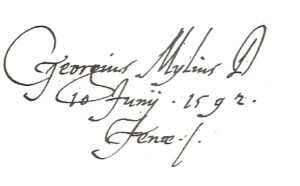 Georgius Mylius D
10 Junij . 1592 .
Jenæ ./.